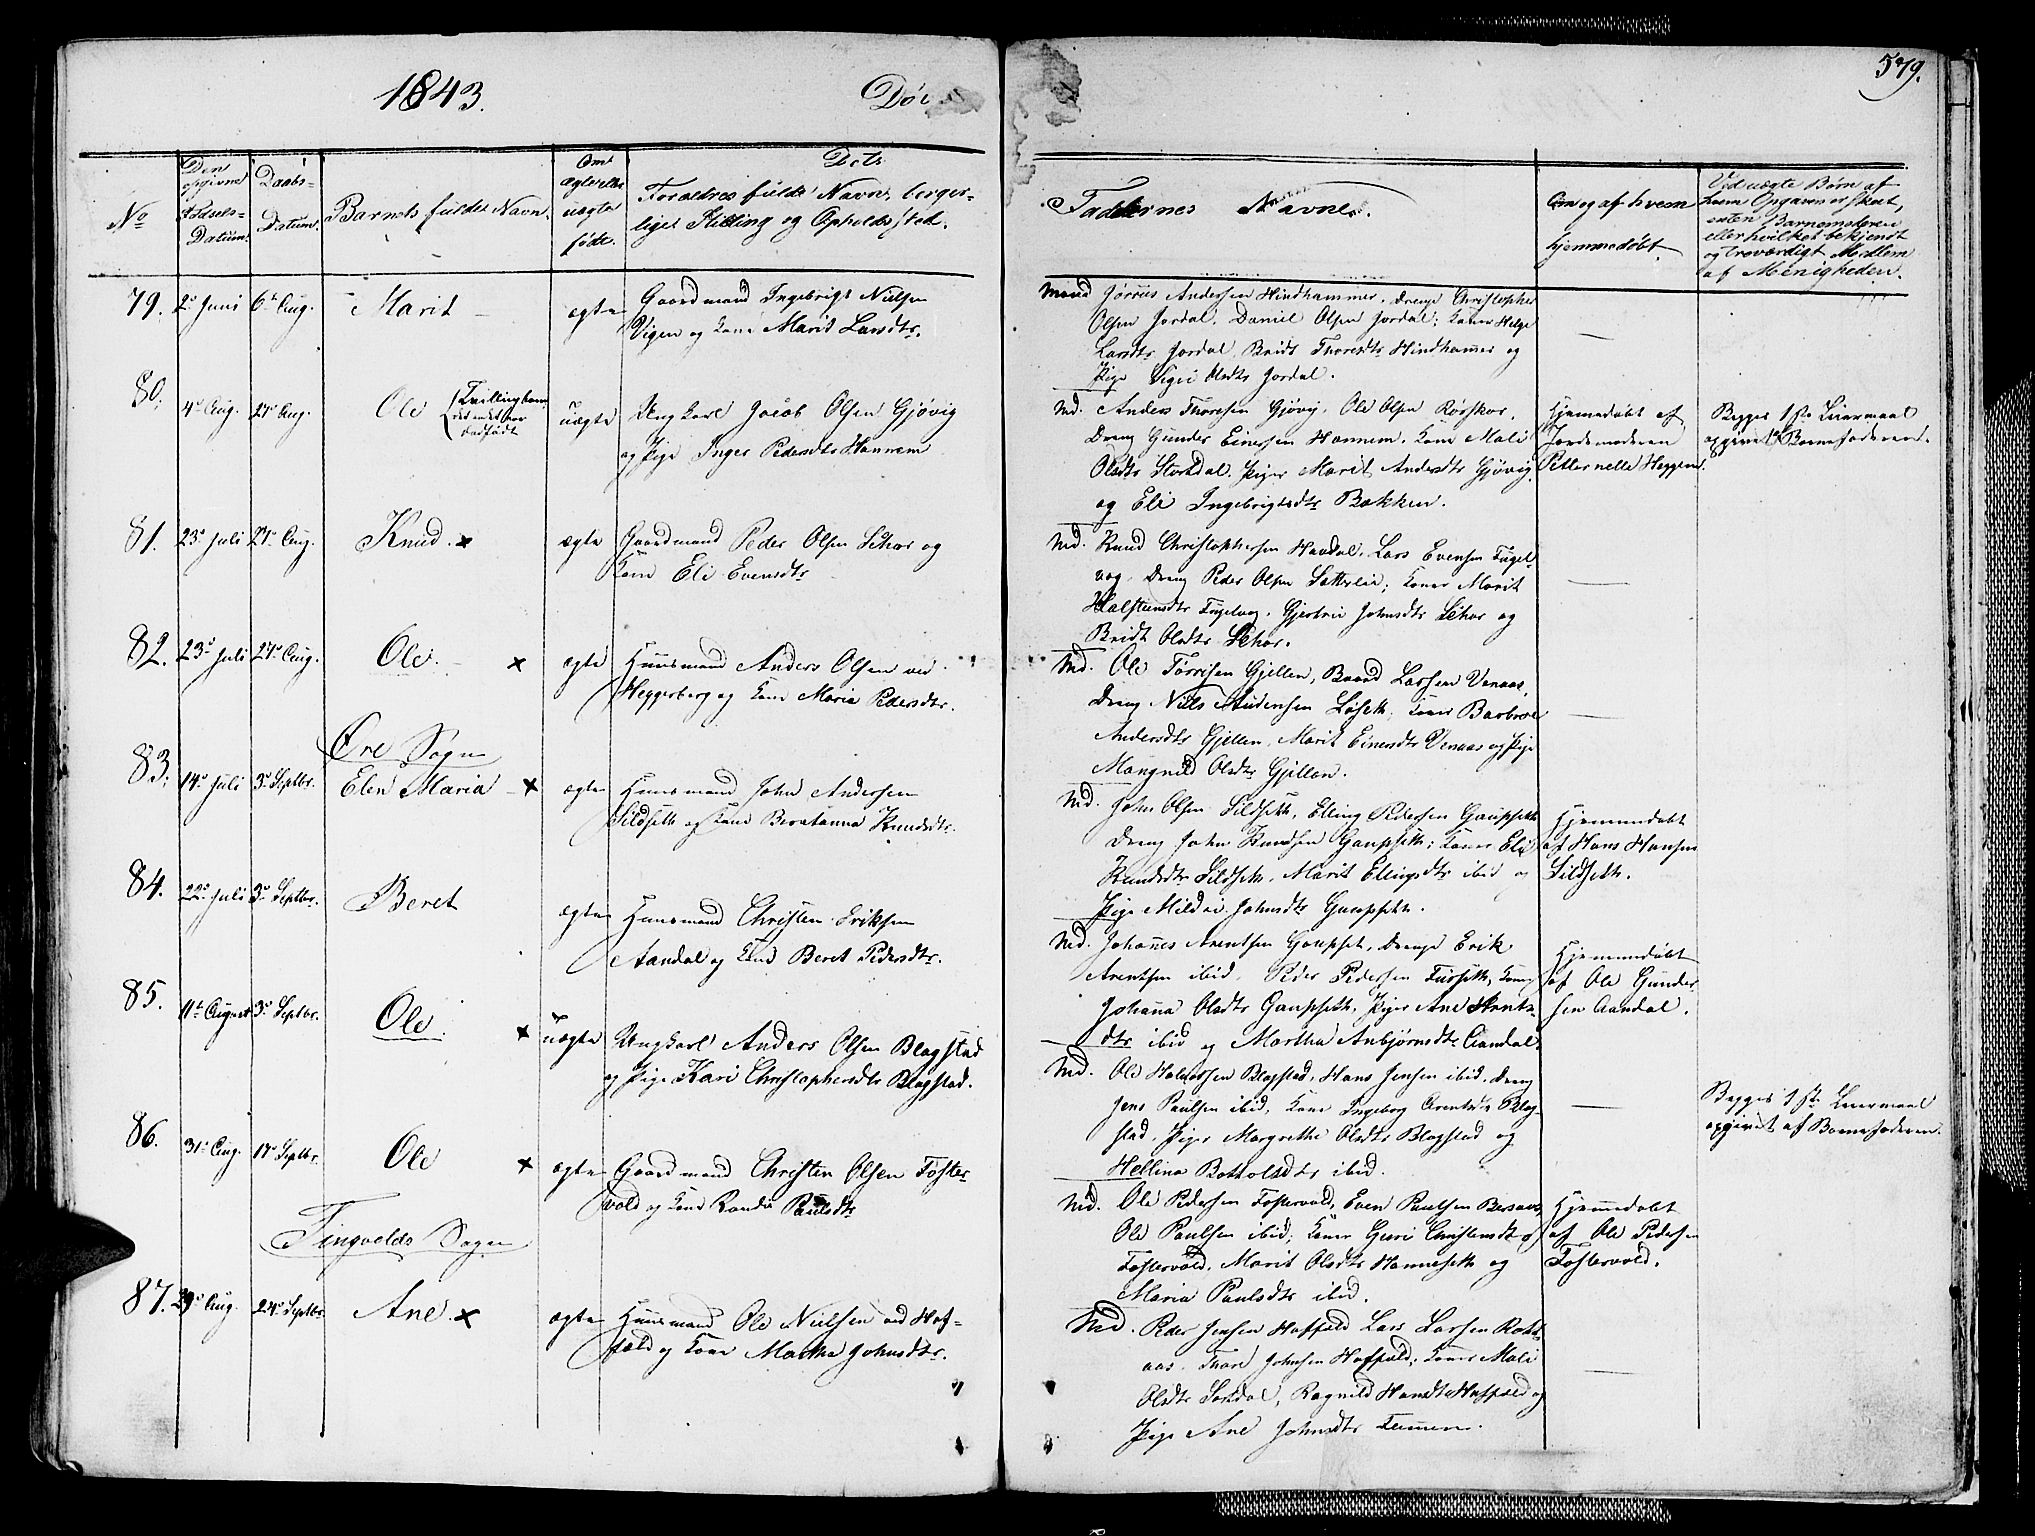 1843.
Dø
579.
No
Den opgivne Fødsels-Datum.
Daabs-Datum.
Barnets fulde Navn.
Om ægte eller uægte føde.
Dets Forældres fulde Navn, borger-
lige Stilling og Opholdssted.
Faddernes Navne.
Om og af hvem
hjemmedøbt.
Ved uægte Børn af
hvem Opgaven er skeet,
enten Barnemoderen
eller hvilket bekjendt
og troværdigt Medlem
af Menigheden.
79. 2 Juni 6te Aug. Marit ægte Gaardmand Ingebrigt Nielsen
Vigen og Kone Marit Larsdtr.
Mænd Andersen Hindhammer, Drenge Christopher
Olsen Jordal, Daniel Olsen Jordal; Koner Helge
Larsdtr Jordal, Bridt Thoresdtr Hindhamer og
Pige Sigri Olsdtr Jordal.
80. 4de Aug. 27de Aug. Ole Tvillingbarn
det andet var
dødfødt
uægte Ungkarl Jacob Olsen Gjøvig
og Pige Inger Pedersdtr Hannem
Md. Anders Thoresen Gjøvig, Ole Olsen Rørskor,
Dreng Gunder Einersen Hannem. Kone Mali
Olsdtr Storkdal. Piger Marit Andersdtr Gjøvig
og Eli Ingebrigtsdtr Bækken.
Hjemedøbt af
Jordemoderen
Petternelle Heggem.
Begges 1ste Leiermaal
opgivet Barnefaderen.
81. 23de Juli 27de Aug. Knud. x ægte Gaardmand Peder Olsen og
Kone Eli Evensdtr
Md. Knud Christophersen Havdal, Lars Evensen Fugel-
vog, Dreng Peder Olsen Sætterlie; Koner Marit
Halsteinsdtr Fugelvog, Gjertrue Johnsdtr og
Bridt Olsdtr
82. 23de Juli 27de Aug. Ole. x ægte Huusmand Anders Olsen ved
Heggerberg og Kone Maria Pedersdtr.
Md. Ole Tørrisen Gjellen, Baard Larsen Venaas,
Dreng Niels Audensen Løseth; Koner Barbroe
Andersdtr Gjellen, Marit Einersdtr Venaas og Pige
Mangnild Olsdtr Gjellen.
Øre Sogn
83. 14de Juli 3de Septbr. Elen Maria x ægte Huusmand John Andersen
Sildseth og Kone Beratanna Knudsdtr.
Md. John Olsen Sildseth, Elling Pedersen Gaupseth
Dreng John Knudsen Gaupseth; Koner Eli
Knudsdtr Sildseth, Marit Ellingsdtr ibid og
Pige Mildri Johnsdtr Gaupseth.
Hjemmedøbt
af Hans Hansen
Sildseth.
84. 22de Juli 3de Septbr. Beret ægte Huusmand Christen Eriksen
Aandal og Kone Beret Pedersdtr.
Md. Johannes Arentsen Gaupset, Drenge Erik
Arentsen ibid, Peder Pedersen Furseth, Kone
Johanna Olsdtr Gaupseth, Piger Ane Arents-
dtr ibid og Martha Anbjørnsdtr Aandal.
Hjemmedøbt
af Ole Gunder
sen Aandal.
85. 11te August 3de Septbr. Ole. x uægte Ungkarl Anders Olsen Blagstad
og Pige Kari Christophersdtr Blagstad.
Md. Ole Halvorsen Blagstad, Hans Jensen ibid, Dreng
Jens Paulsen ibid, Kone Ingeborg Arentsdtr Blag-
stad, Piger Margrethe Olsdtr Blagstad og
Hellina Bottolsdtr ibid.
Begges 1ste Leiermaal
opgivet af Barnefaderen.
86. 31te Aug. 17de Septbr. Ole x ægte Gaardmand Christen Olsen Foster-
vold og Kone Randi Paulsdtr
Md. Ole Pedersen Fostervold, Even Paulsen Bersaas,
Ole Paulsen ibid; Koner Guri Christensdtr
Fostervold, Marit Olsdtr Hanneseth og
Maria Paulsdtr ibid.
Hjemmedøbt
af Ole Pedersen
Fostervold.
Tingvolds Sogn
87. 29de Aug. 24de Septbr. Ane x ægte Huusmand Ole Nielsen ved Hof-
fæld og Kone Martha Johnsdtr.
Md. Peder Jensen Hoffæld Lars Larsen Rot-
aas, Thore Johnsen Hoffæld; Koner Mali
Olsdtr Sordal, Ragnild Hansdtr Hoffæld og
Pige Ane Johnsdtr